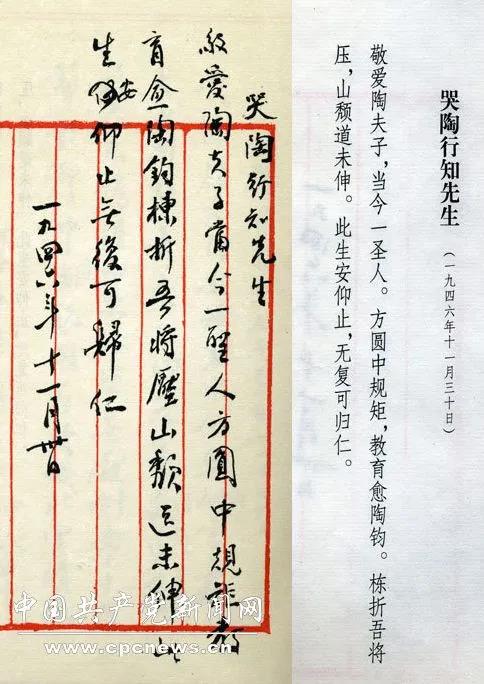 哭陶行知先生
(一九四六年十一月三十日)
敬爱陶夫子,当今一圣人。方圆中规矩,教育愈陶钧。栋折吾将
压,山颓道未伸。此生安仰止,无复可归仁。
哭陶行知先生
敬愛陶夫子當今一聖人方圓中規矩教
育愈陶鈞棟折吾將壓山頹道未伸此
生安仰止無復可歸仁
一九四六年十一月卅日
中国共产党新闻网
www.cpcnews.cn